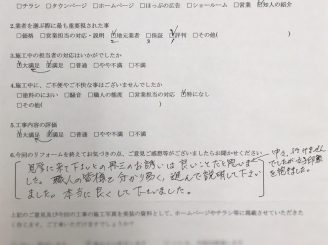 □チラシ □タウンページ □ホームページ □ほっぷの広告 □ショールーム □営業 ☑知人の紹介
2.業者を選ぶ際に最も重要視された事
□価格 □営業担当の対応・説明 ☑地元業者 □保証 ☑評判 □その他(
3.施工中の担当者の対応はいかがでしたか
☑大満足 ☑満足 □普通 □やや不満 □不満
4.施工中に、ご不便やご不快な事はございませんでしたか
□塗料のにおい □騒音 □職人の態度 □営業担当の対応 ☑特になし
□その他(
5.工事内容の評価
☑大満足 ☑満足 □普通 □やや不満 □不満
6.今回のリフォームを終えてお気づきの点、ご意見ご感想等がございましたらお聞かせください
見学に来て下さいとの再三のお誘いは良いことだと思いま
した。職人の皆様も分かり易く、進んで説明して下さい
ました。本当に良くして下さいました。
中々、行けません
でしたが好印象
を抱けました。
上記のご意見及び今回の工事の施工写真を美装の資料として、ホームページやチラシ等に掲載させていただきた